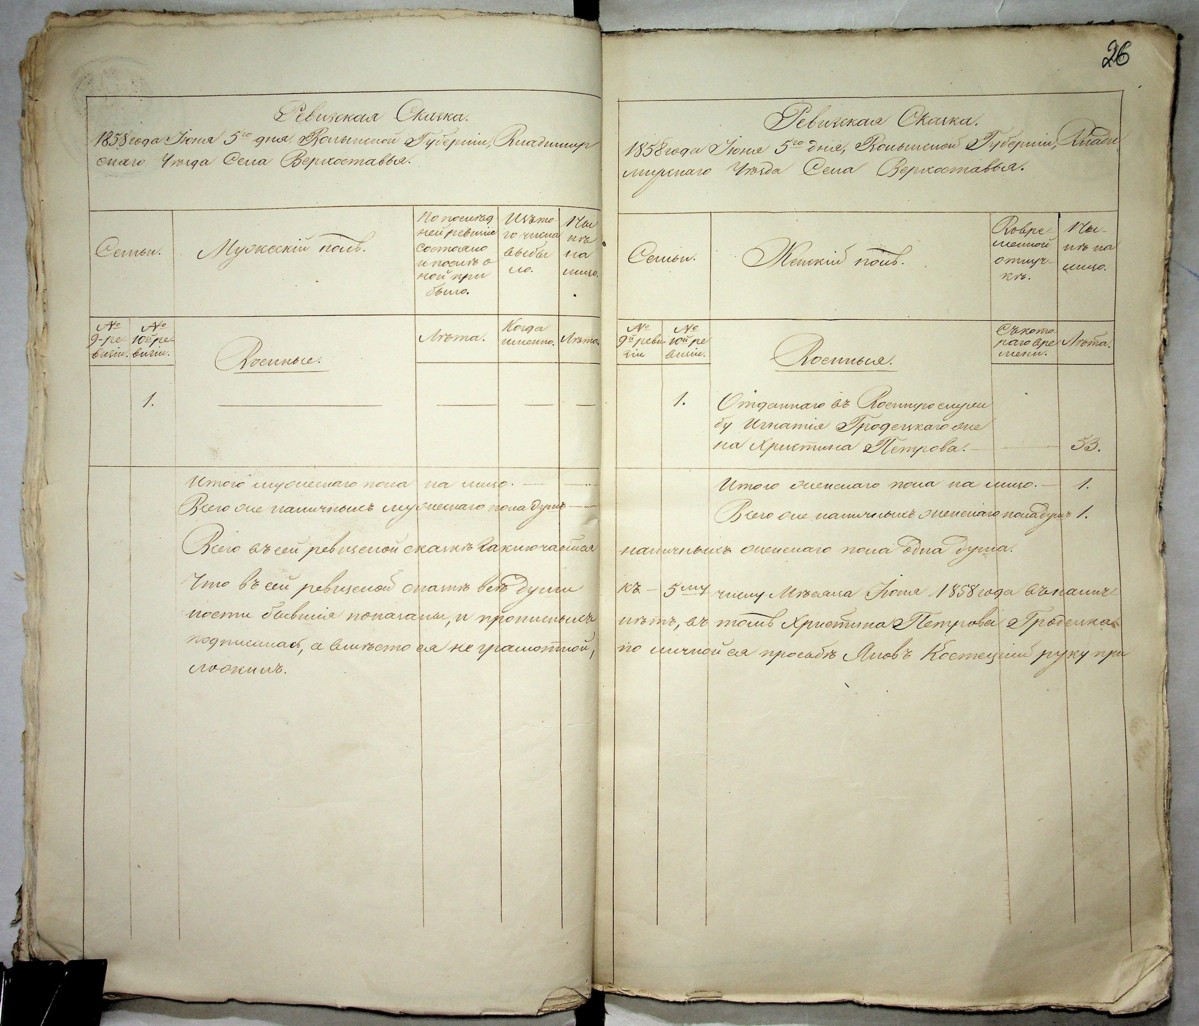 26
Ревизская Сказка.
1858 года Июня 5го дня Волынской Губернии, Владимир
скаго Уезда Села Верхоставья.
Семьи.
Мужескій полъ.
По послѣд
ней ревизіи
состояло
и послѣ о
ной при
было.
Изъ то
го числа
выбы
ло.
Ны
нѣ
на
лицо.
№
9-ре
визіи.
№
10й ре
визіи.
Военные.
Лѣта.
Когда
именно.
Лѣта.
1.
Итого мужескаго пола на лицо.
Всего же наличныхъ мужескаго пола душъ
Всего въ сей ревизской сказкѣ заключается
Что въ сей ревизской сказкѣ всѣ души
ности бывшія показаны, и прописныхъ
подписалась, а вмѣсто ея не грамотной,
ложилъ.
Ревизская Сказка.
1858 года Июня 5го дня, Волынской Губерніи, Влади
мирскаго Уѣзда Села Верхоставья.
Семьи.
Женскій полъ.
Во вре
менной
отлуч
кѣ.
Ны-
нѣ на
лицо.
№
9й реви
зіи
№
10й ре
визіи.
Военныя.
Съ кото
раго вре
мени.
Лѣта.
1.
Отданнаго въ Военную служ
бу Игнатія Гродецкаго же
на Христина Петрова.
53.
Итого женскаго пола на лицо. 1.
Всего же наличныхъ женскаго пола душъ 1.
наличныхъ женскаго пола одна душа.
къ 5му числу Мѣсяца Іюня 1858 года въ налич
нѣтъ, въ томъ Христина Петрова Гродецкая
по личной ея просьбѣ Яковъ Костецкій руку при